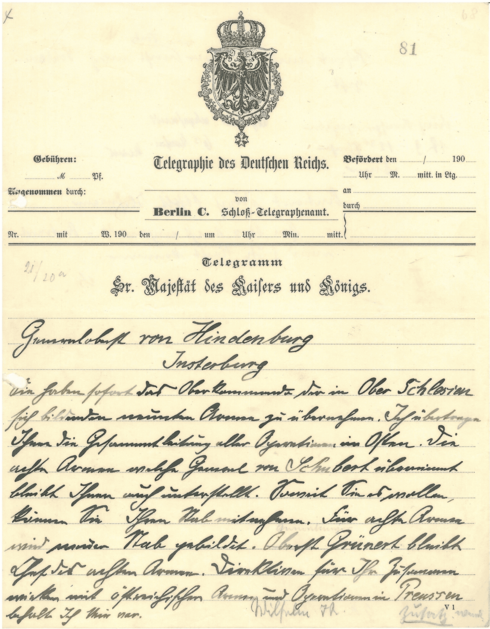 81
Gebühren:
Telegraphie des Deutschen Reichs.
Befördert den / 190
M. Pf.
Uhr M. mitt. in Ltg.
Angenommen durch:
an
von
durch
Berlin C. Schloß-Telegraphenamt.
Nr. mit W. 190 den / um Uhr Min. mitt.
Telegramm
Sr. Majestät des Kaisers und Königs.
Generaloberst von Hindenburg
Insterburg
Sie haben sofort das Oberkommando der in Ober Schlesien
sich bildenden neunten Armee zu übernehmen. Ich übertrage
Ihnen die Gesammtleitung aller Operationen im Osten. Die
achte Armee welche General von Schubert übernimmt
bleibt Ihnen auch unterstellt. Soweit Sie es wollen,
können Sie Ihren Stab mitnehmen. Für achte Armee
wird neuer Stab gebildet. Oberst Grünert bleibt
Chef des achten Armee. Direktiven für Ihr Zusammen
wirken mit österreichischer Armee und Operationen in Preussen
behalte Ich Mir vor. Wilhelm
V 1